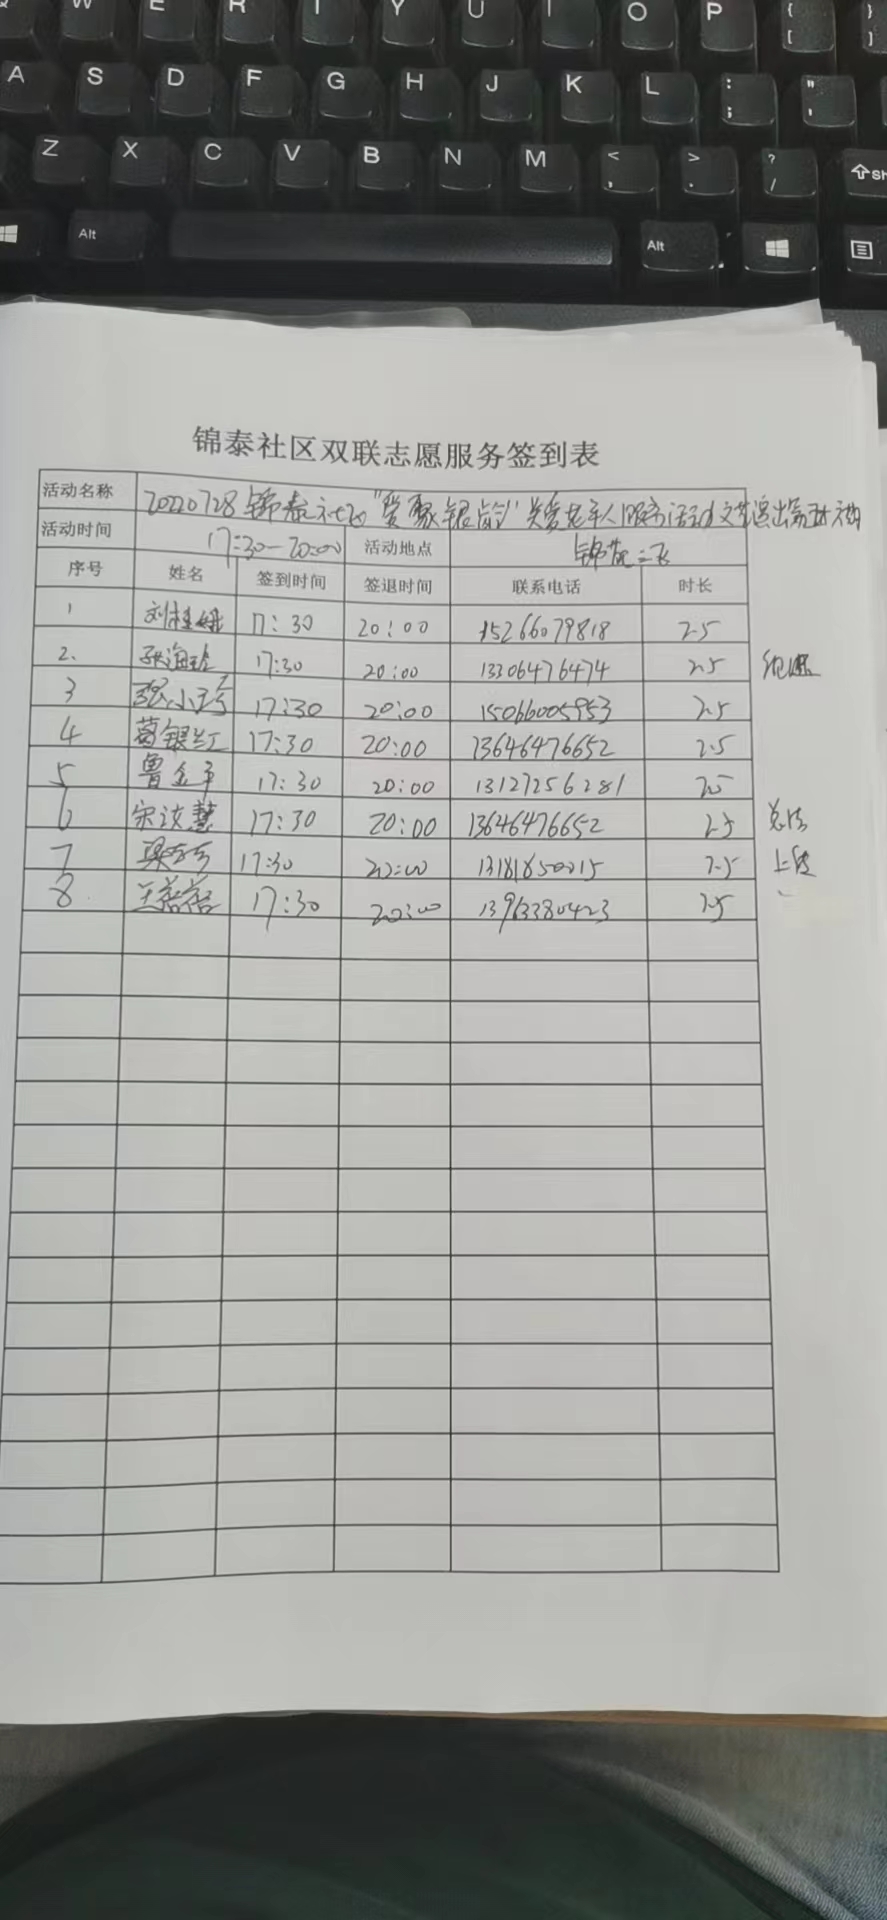 Q W E R T Y U I O P { [ } ]
A S D F G H J K L : ; " '
Z X C V B N M < , > . ? / Sh
Alt Alt
锦泰社区双联志愿服务签到表
活动名称 20220728锦泰社区"爱聚银龄"关爱老年人服务活动文艺演出
活动时间 17:30-20:00 活动地点 锦苑二
序号 姓名 签到时间 签退时间 联系电话 时长
1 刘桂娥 17:30 20:00 15266079818 2.5
2. 张海玲 17:30 20:00 13306476474 2.5
3 张小 17:30 20:00 15066005953 2.5
4 葛银红 17:30 20:00 13646476652 2.5
5 鲁金平 17:30 20:00 13127256281 2.5
6 宋汝慧 17:30 20:00 13646476652 2.5
7 梁 17:30 20:00 13181850015 2.5 上传
8 王蓉蓉 17:30 20:00 13963380423 2.5